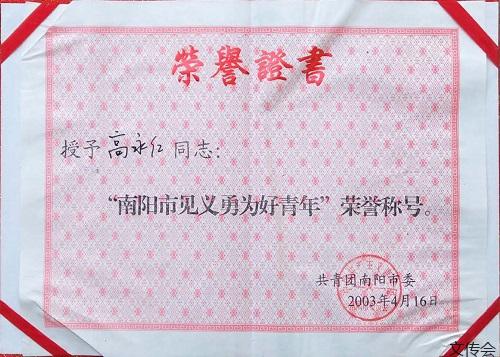 荣譽證書
授予高永红同志：
“南阳市见义勇为好青年”荣誉称号。
共青团南阳市委
2003年4月16日
文传会